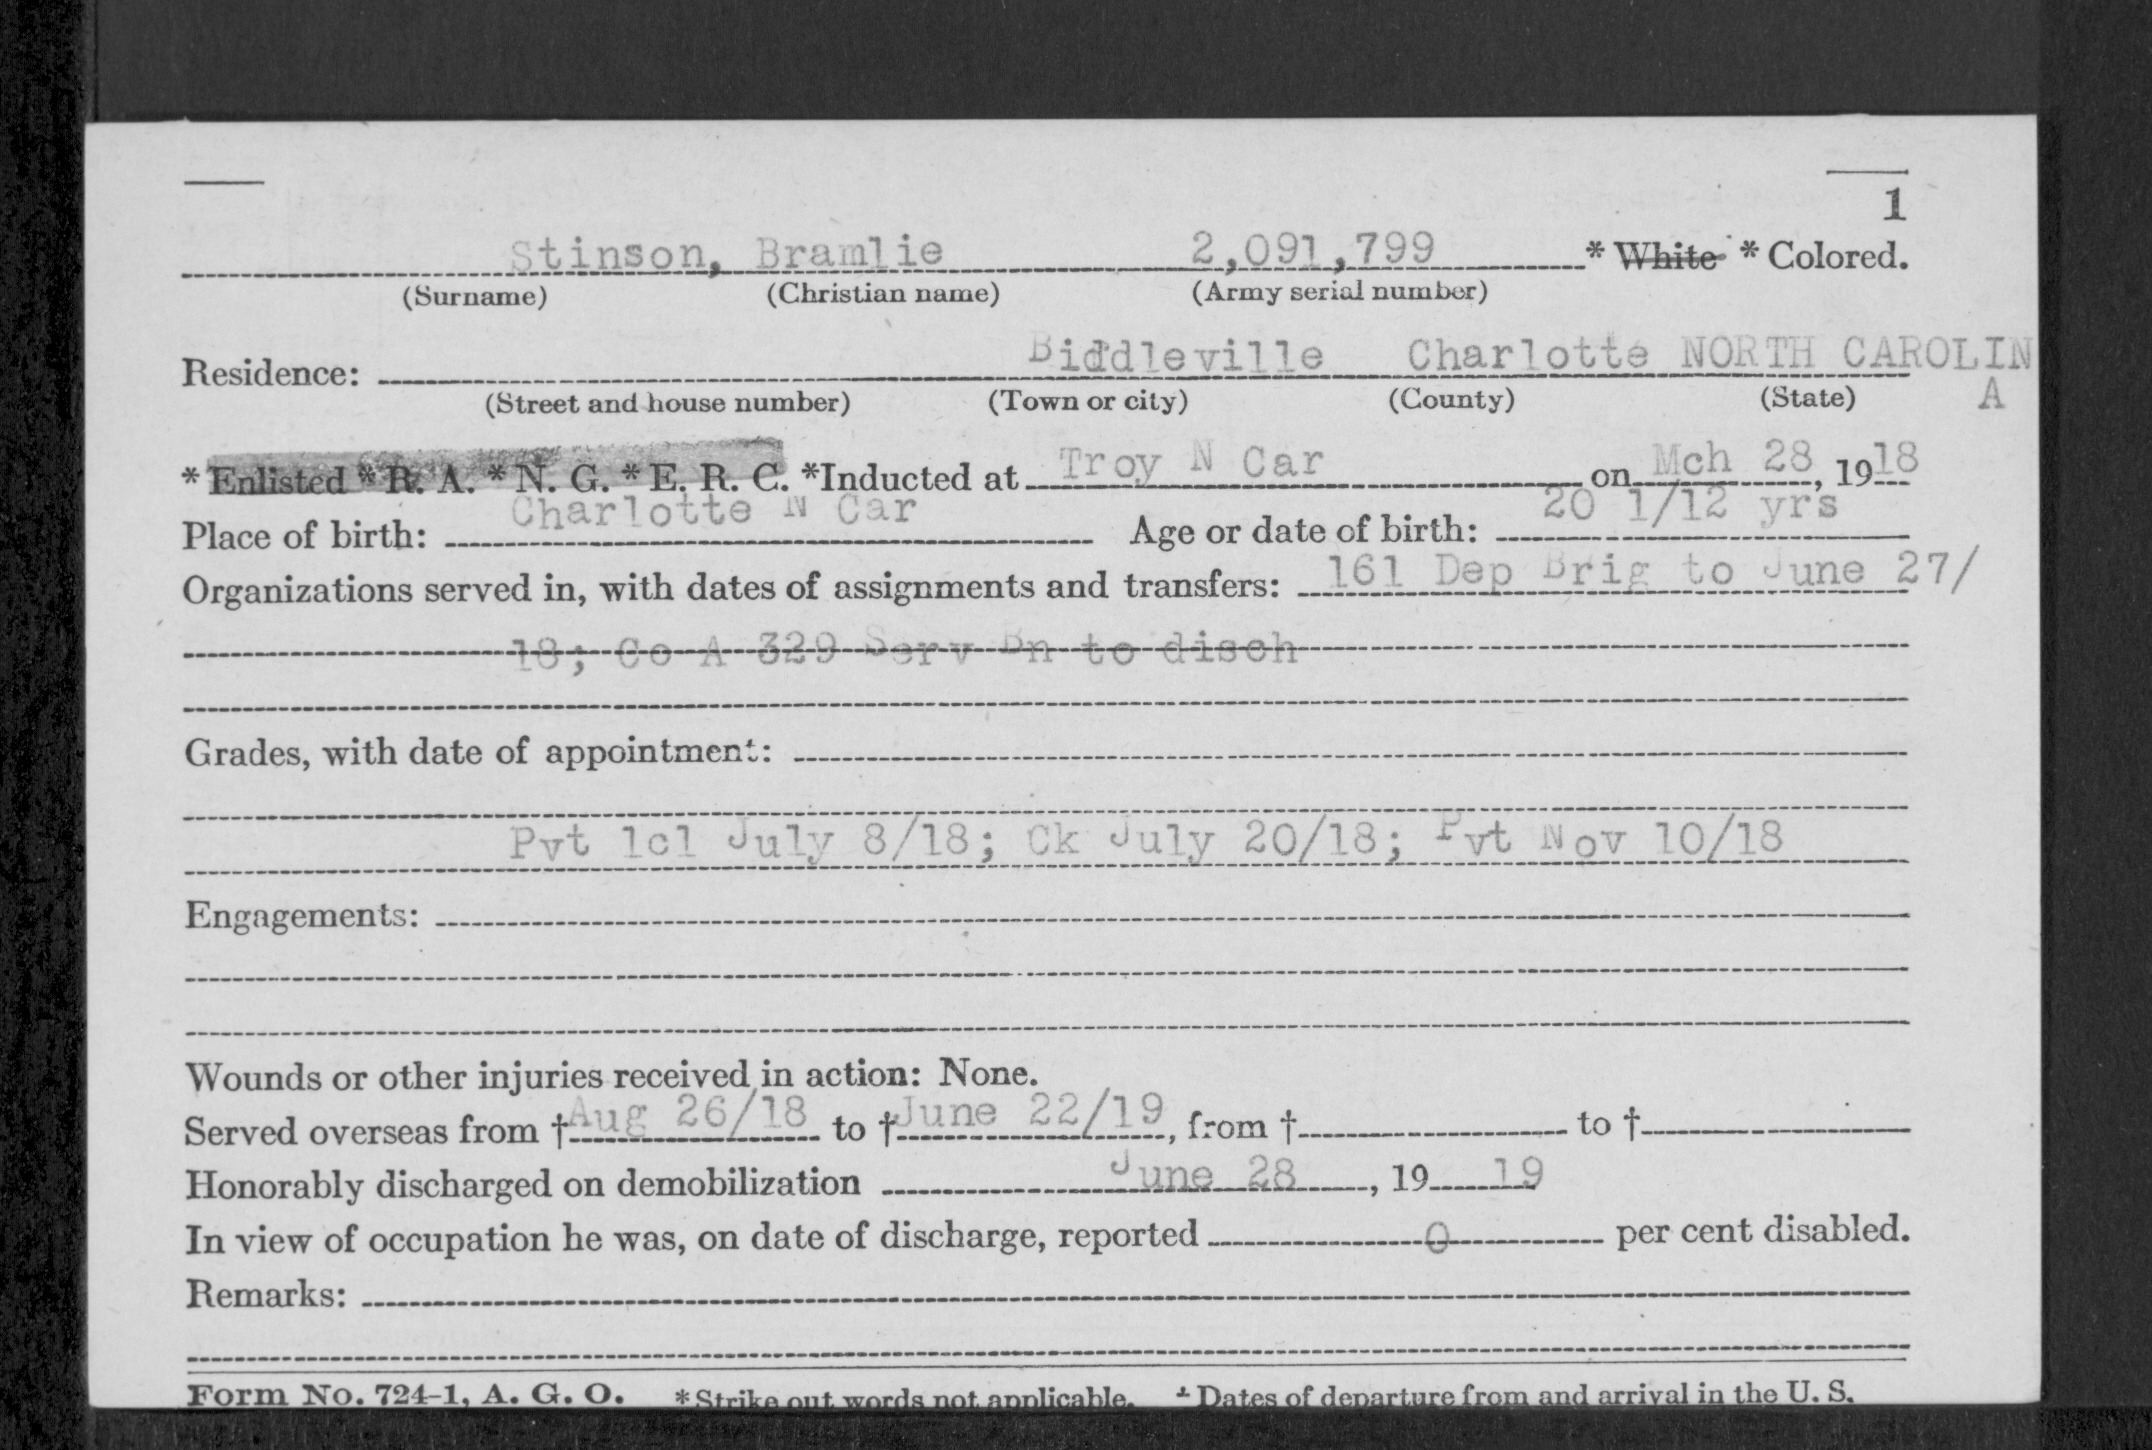 1
Stinson, Bramlie 2,091,799 * White * Colored.
(Surname) (Christian name) (Army serial number)
Residence: Biddleville Charlotte NORTH CAROLIN
(Street and house number) (Town or city) (County) (State) A
* Enlisted * R. A. * N. G. * E. R. C. *Inducted at Troy N Car on Mch 28, 1918
Place of birth: Charlotte N Car Age or date of birth: 20 1/12 yrs
Organizations served in, with dates of assignments and transfers: 161 Dep Brig to June 27/
18; Co A 329 Serv Bn to disch
Grades, with date of appointment:
Pvt 1cl July 8/18; Ck July 20/18; Pvt Nov 10/18
Engagements:
Wounds or other injuries received in action: None.
Served overseas from † Aug 26/18 to † June 22/19, from † to †
Honorably discharged on demobilization June 28, 19 19
In view of occupation he was, on date of discharge, reported 0 per cent disabled.
Remarks:
Form No. 724-1, A. G. O. * Strike out words not applicable. † Dates of departure from and arrival in the U. S.